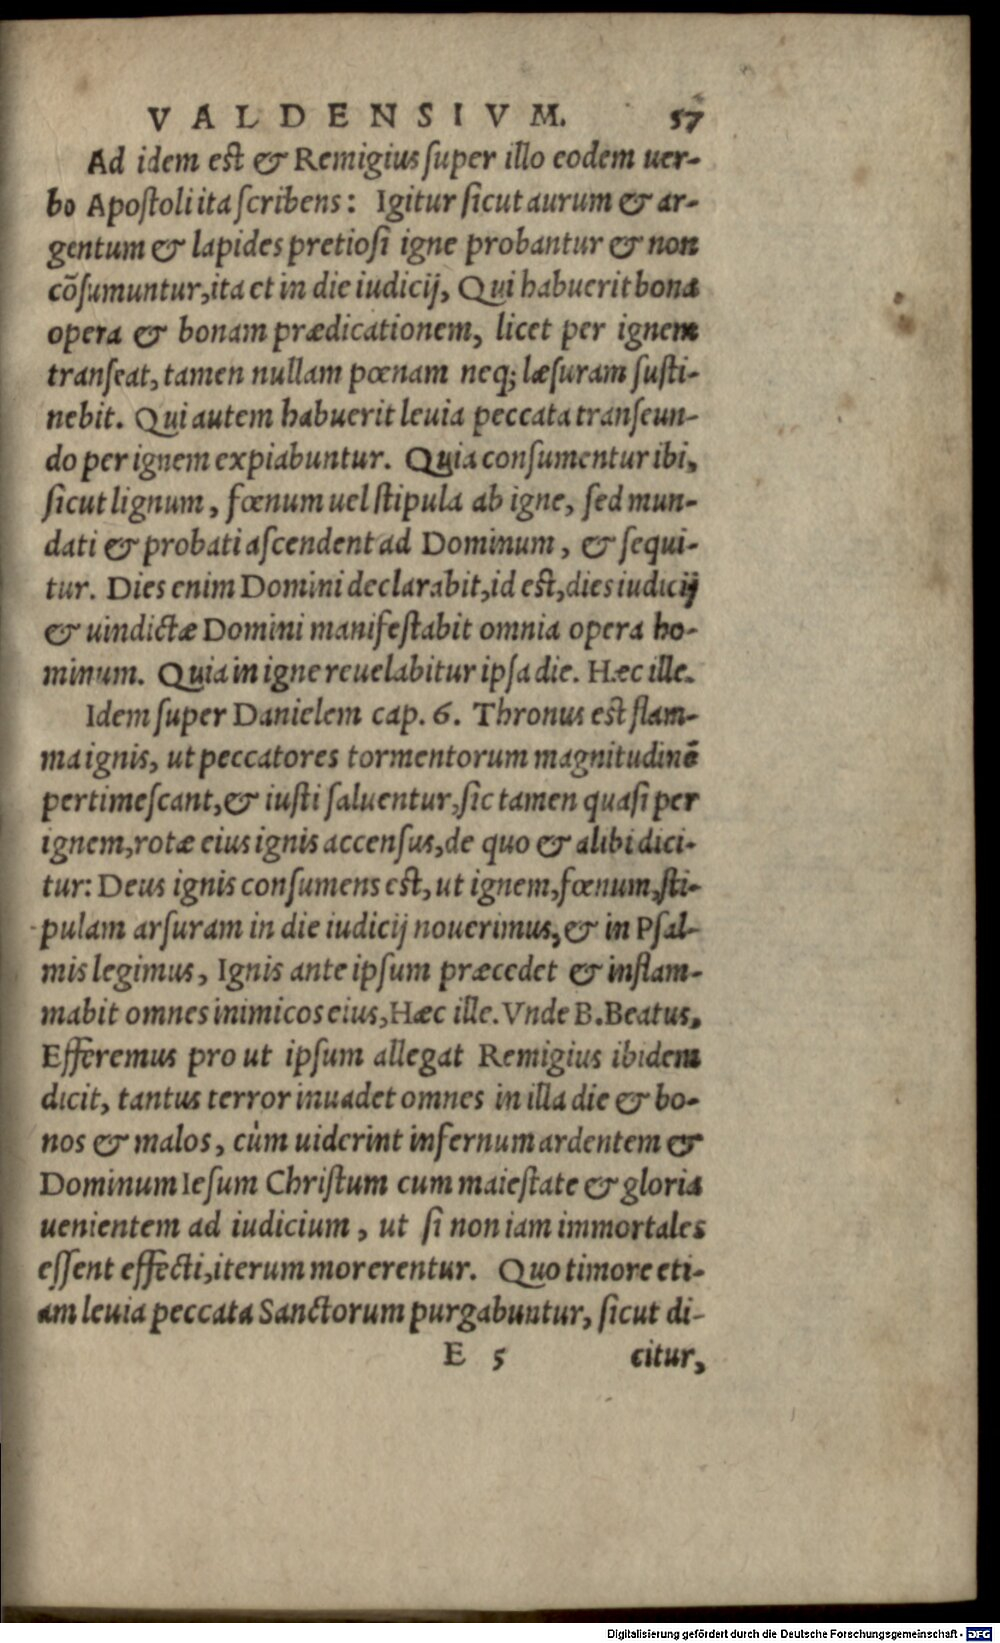 VALDENSIVM. 57
Ad idem est & Remigius super illo eodem uer-
bo Apostoli ita scribens: Igitur sicut aurum & ar-
gentum & lapides pretiosi igne probantur & non
cõsumuntur, ita et in die iudicij, Qui habuerit bona
opera & bonam prædicationem, licet per ignem
transeat, tamen nullam pœnam neq; læsuram susti-
nebit. Qui autem habuerit leuia peccata transeun-
do per ignem expiabuntur. Quia consumentur ibi,
sicut lignum, fœnum uel stipula ab igne, sed mun-
dati & probati ascendent ad Dominum, & sequi-
tur. Dies enim Domini declarabit, id est, dies iudicij
& uindictæ Domini manifestabit omnia opera ho-
minum. Quia in igne reuelabitur ipsa die. Hæc ille.
Idem super Danielem cap. 6. Thronus est flam-
ma ignis, ut peccatores tormentorum magnitudinẽ
pertimescant, & iusti saluentur, sic tamen quasi per
ignem, rotæ eius ignis accensus, de quo & alibi dici-
tur: Deus ignis consumens est, ut ignem, fœnum, sti-
pulam arsuram in die iudicij nouerimus, & in Psal-
mis legimus, Ignis ante ipsum præcedet & inflam-
mabit omnes inimicos eius, Hæc ille. Vnde B. Beatus,
Efferemus pro ut ipsum allegat Remigius ibidem
dicit, tantus terror inuadet omnes in illa die & bo-
nos & malos, cùm uiderint infernum ardentem &
Dominum Iesum Christum cum maiestate & gloria
uenientem ad iudicium, ut si non iam immortales
essent effecti, iterum morerentur. Quo timore eti-
am leuia peccata Sanctorum purgabuntur, sicut di-
E 5 citur,
Digitalisierung gefördert durch die Deutsche Forschungsgemeinschaft - DFG